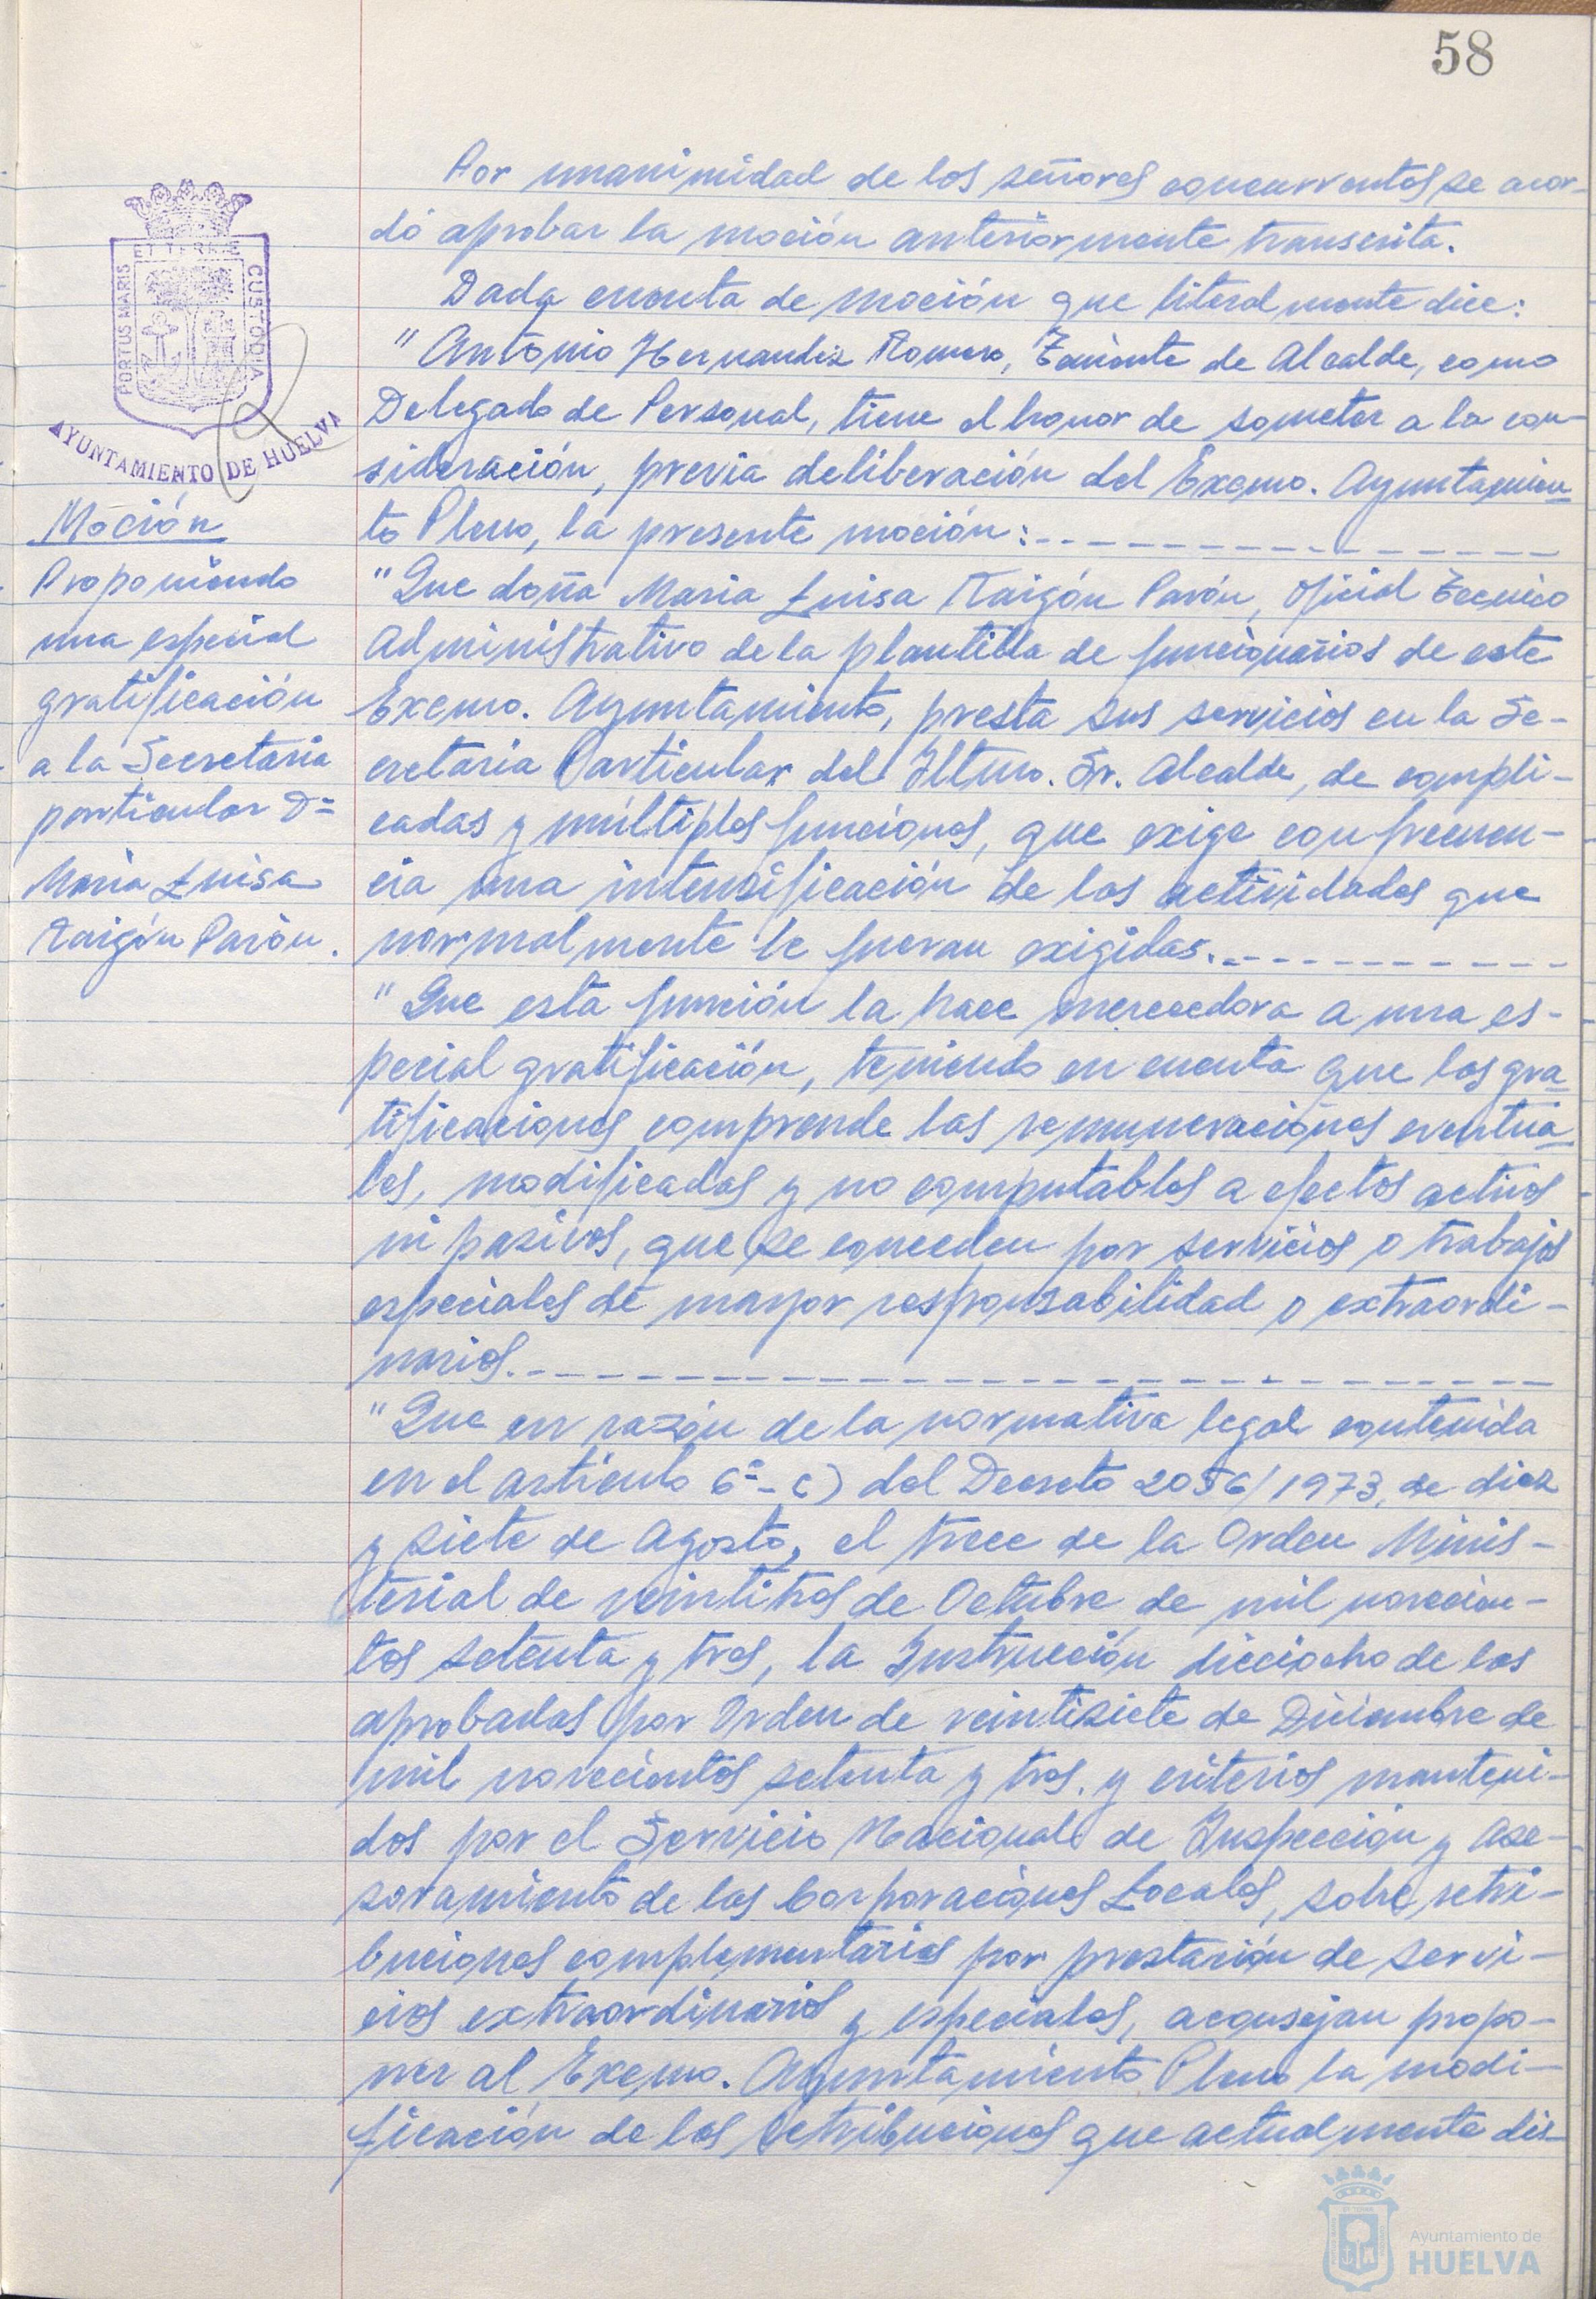 58
Por unanimidad de los señores concurrentes se acor-
dó aprobar la moción anteriormente transcrita.
Dada cuenta de moción que literalmente dice:
"Antonio Hernandez Romero, Teniente de Alcalde, como
Delegado de Personal, tiene el honor de someter a la con-
sideración, previa deliberación del Excmo. Ayuntamien-
to Pleno, la presente moción:
"Que doña Maria Luisa Raigón Pavón, Oficial Tecnico
Administrativo de la plantilla de funcionarios de este
Excmo. Ayuntamiento, presta sus servicios en la Se-
cretaria Particular del Iltmo. Sr. Alcalde, de compli-
cadas y múltiples funciones, que exige con frecuen-
cia una intensificación de las actividades que
normalmente le fueran exigidas.
"Que esta función la hace merecedora a una es-
pecial gratificación, teniendo en cuenta que las gra-
tificaciones comprende las remuneraciones eventua-
les, modificadas y no computables a efectos activos
ni pasivos, que se conceden por servicios o trabajos
especiales de mayor responsabilidad o extraordi-
narios.
"Que en razón de la normativa legal contenida
en el artículo 6º-c) del Decreto 2056/1973, de diez
y siete de Agosto, el trece de la Orden Minis-
terial de veintitres de Octubre de mil novecien-
tos setenta y tres, la Instrucción dieciocho de las
aprobadas por Orden de veintisiete de Diciembre de
mil novecientos setenta y tres, y criterios manteni-
dos por el Servicio Nacional de Inspección y Ase-
soramiento de las Corporaciones Locales, sobre retri-
buciones complementarias por prestación de servi-
cios extraordinarios y especiales, aconsejan propo-
ner al Excmo. Ayuntamiento Pleno la modi-
ficación de las retribuciones que actualmente dis-
PORTUS MARIS
ET TERRAE
CUSTODIA
AYUNTAMIENTO DE HUELVA
Moción
Proponiendo
una especial
gratificación
a la Secretaria
particular Dª
Maria Luisa
Raigón Pavón.
Ayuntamiento de
HUELVA